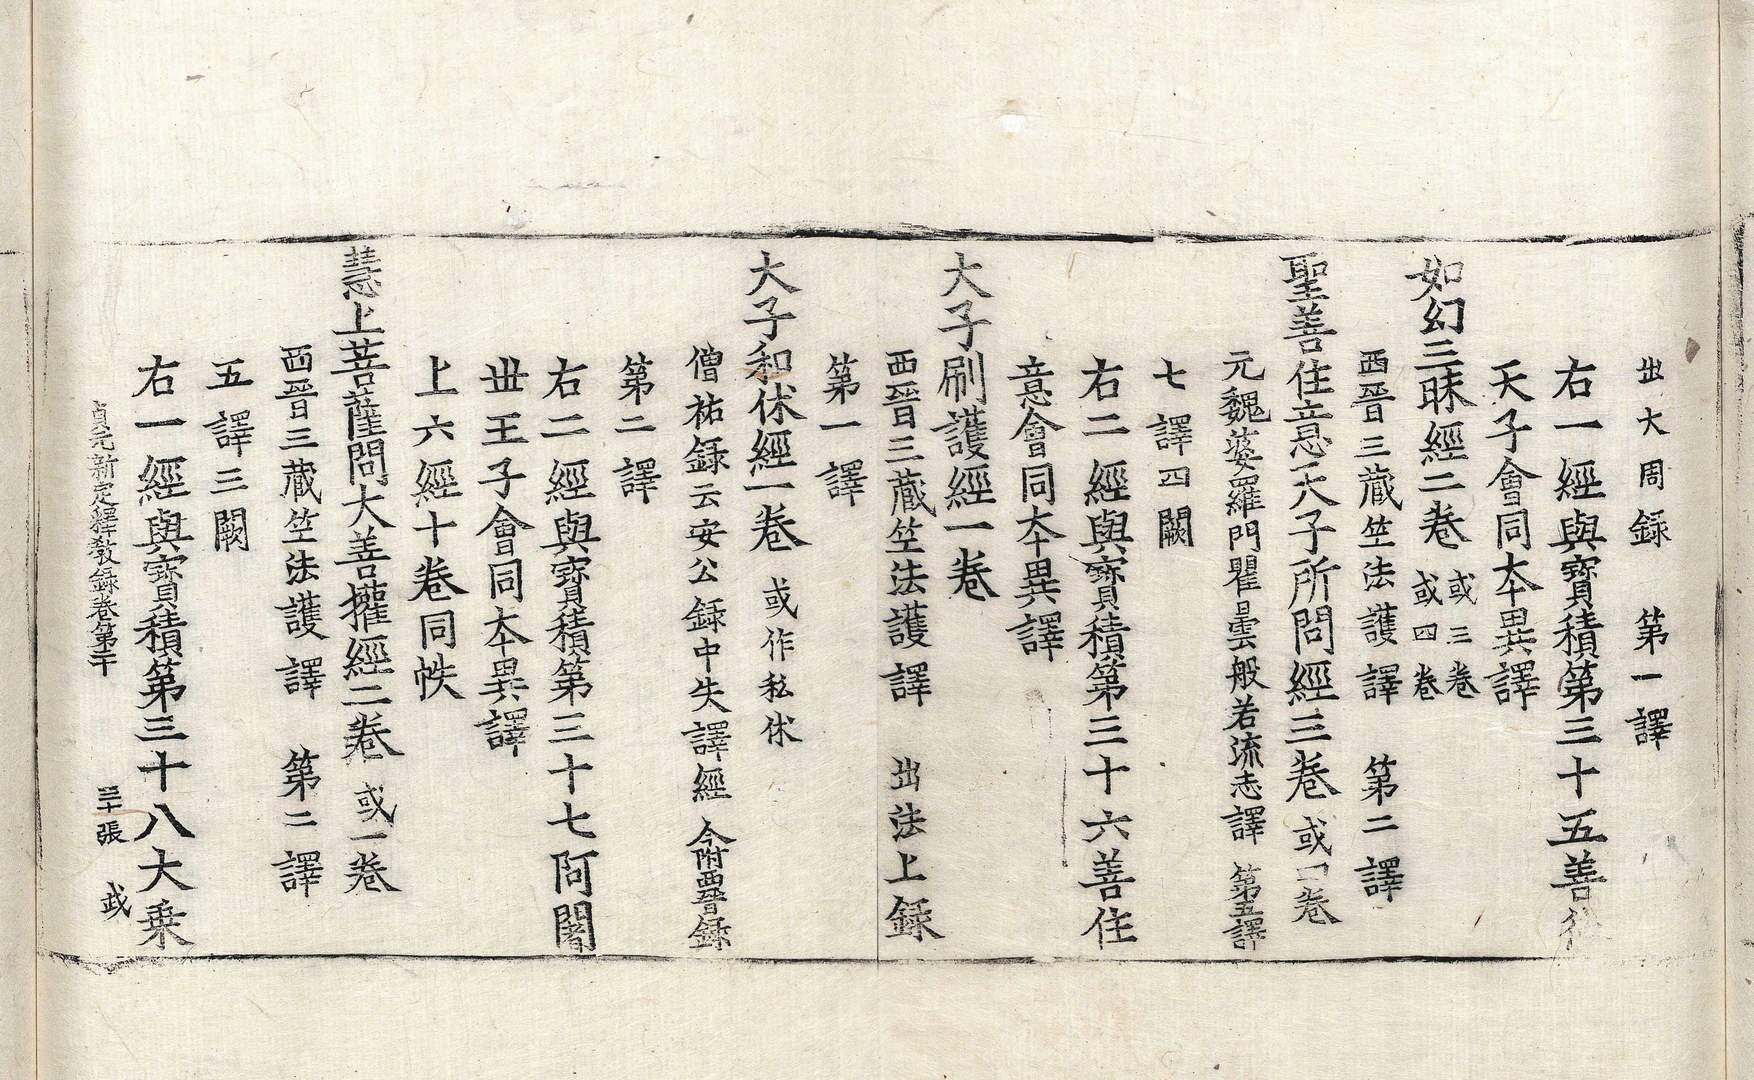 出大周録　第一譯
右一經與寶積第三十五善住
天子會同本異譯
如幻三昧經二卷 或三卷 或四卷
西晉三藏竺法護譯　第二譯
聖善住意天子所問經三卷 或四卷
元魏婆羅門瞿曇般若流志譯 第五譯
七譯四闕
右二經與寶積第三十六善住
意會同本異譯
大子刷護經一卷
西晉三藏竺法護譯　出法上録
第一譯
大子和休經一卷 或作私休
僧祐録云安公録中失譯經 今附西晉録
第二譯
右二經與寶積第三十七阿闍
丗王子會同本異譯
上六經十卷同帙
慧上菩薩問大善權經二卷 或一卷
西晉三藏竺法護譯　第二譯
五譯三闕
右一經與寶積第三十八大乗
貞元新定釋教録卷第二十　三十張　武